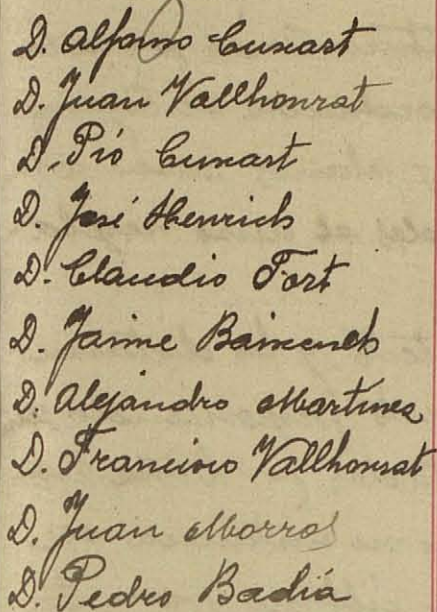 D. Alfonso Cunxart
D. Juan Vallhonrat
D. Pío Cunxart
D. José Henrich
D. Claudio Fort
D. Jaime
D. Alejandro Martinez
D. Francisco Vallhonrat
D. Juan Morros
D. Pedro Badía